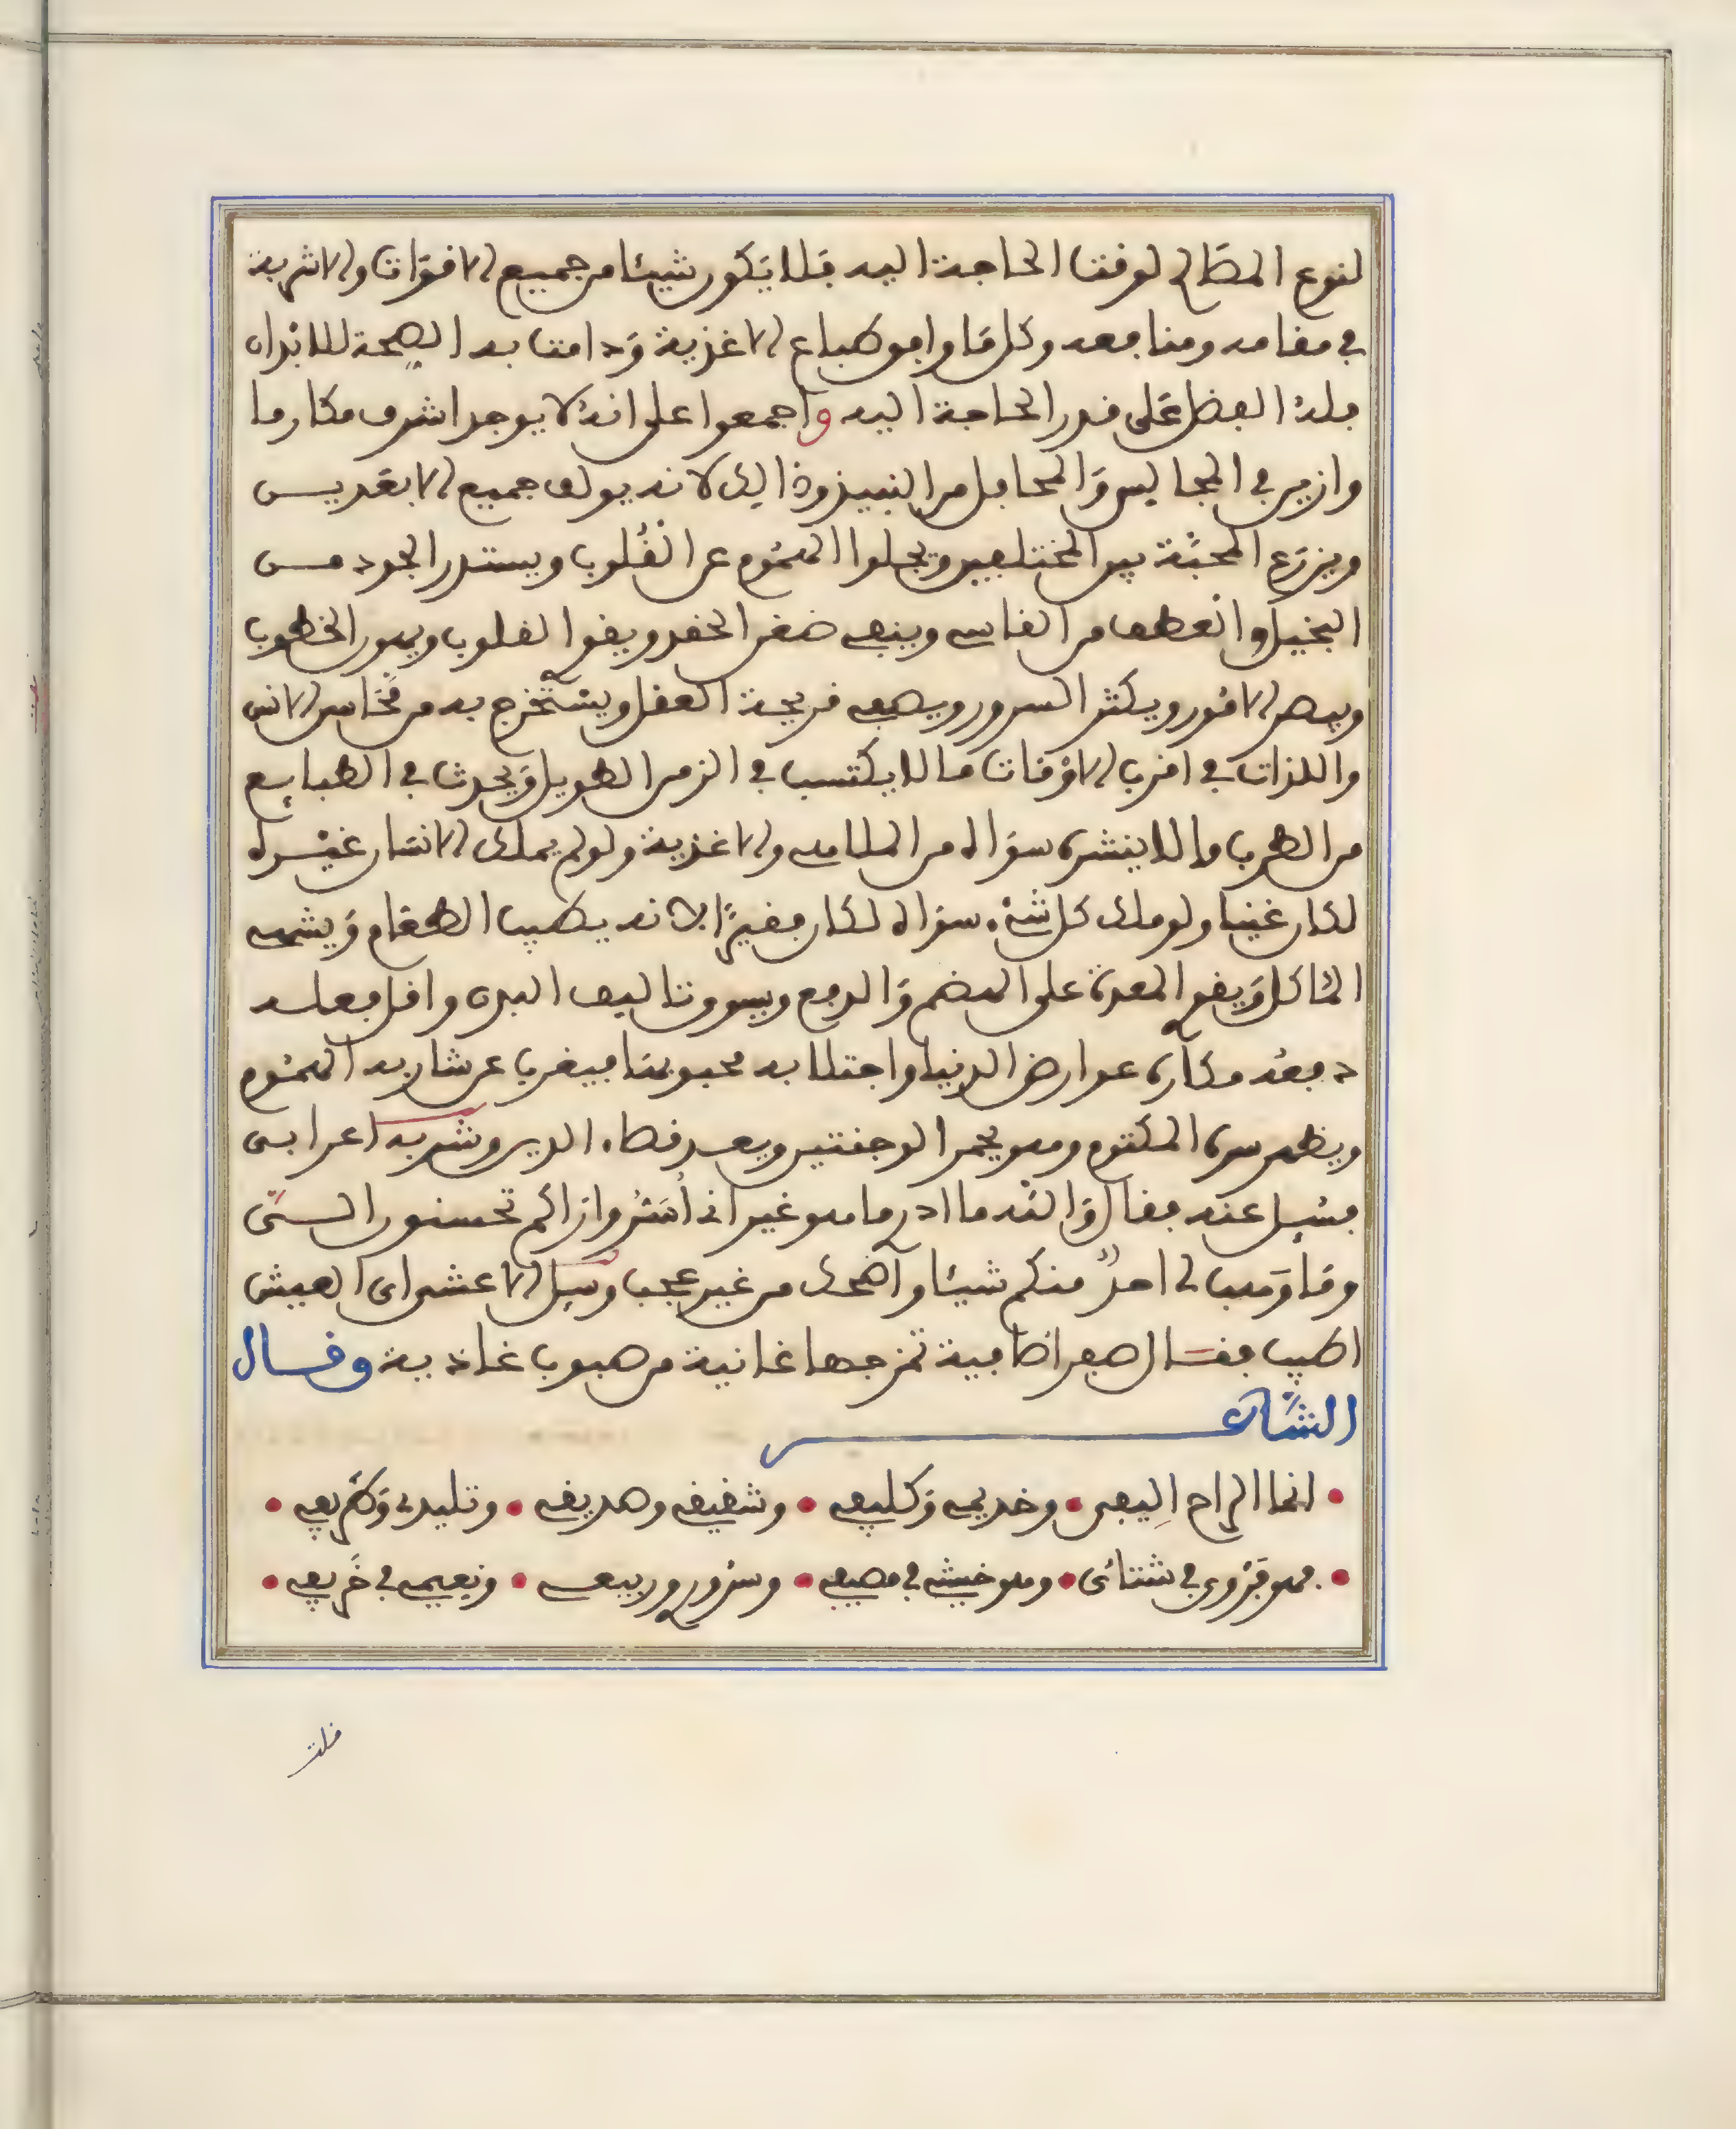 لنوع المصالح لوقت الحاجة اليه فلا يكون شيئا من جميع الاقوات والاشربة
في مقامه ومنافعه وكل ما وافق طباع الاغذية ودامت به الصحة للابدان
فله الفضل على قدر الحاجة اليه واجمعوا على انه لا يوجد اشرف مكارما
وازين في المجالس والمحافل من النبيذ وذالك لانه يولف جميع
ويزرع المحبة بين المختلفين ويجلوا الهموم عن القلوب ويستدر الجود مــن
البخيل والعطف من القاسي وينفي ضغن الحقد ويقوي القلوب ويهون الخطوب
ويكثر السرور ويصفي قريحة العقل ويستخرج به من محاسن الانس
واللذات في اقرب الاوقات ما لا يكتسب في الزمن الطويل ويحدث في الطبايع
من الطرب ما لا ينشره سواه من الملاهي والاغذية ولو لم يملك الانسان غيــره
لكان غنيا ولو ملك كل شيء سواه لكان فقيرا لانه يطيب الطعام ويشهي
المئاكل ويقوي المعدة على الهضم والدفع ويسوي تاليف البدن واقل فعلــه
دفعه مكاره عوارض الدنيا واجتلابه محبوبها فيغرب عن شاربه الهموم
ويظهر سره المكتوم وهو يحمر الوجنتين ويعــد قضاء الدين وشربه اعرابي
فسيل عنه فقال والله ما ادر ما هو غير اني أسر وازاكم تحسنون الــي
وما وهب لي احد منكم شيئا واضحك من غير عجب وسيل الاعشى اي العيش
اطيب فقــال صهبا صافية تمزجها غانية من صوب غادية وقــال
الشاعــر
• انما الراح اليفي • وخديمي وكليفي • وشقيقي وصديقي • وتليدي وطريفي •
• فهو فروي في شتائي • وهو خيشي في مصيفي • وسروري وربيعــي • ونعيمي في خريفي •
قلت